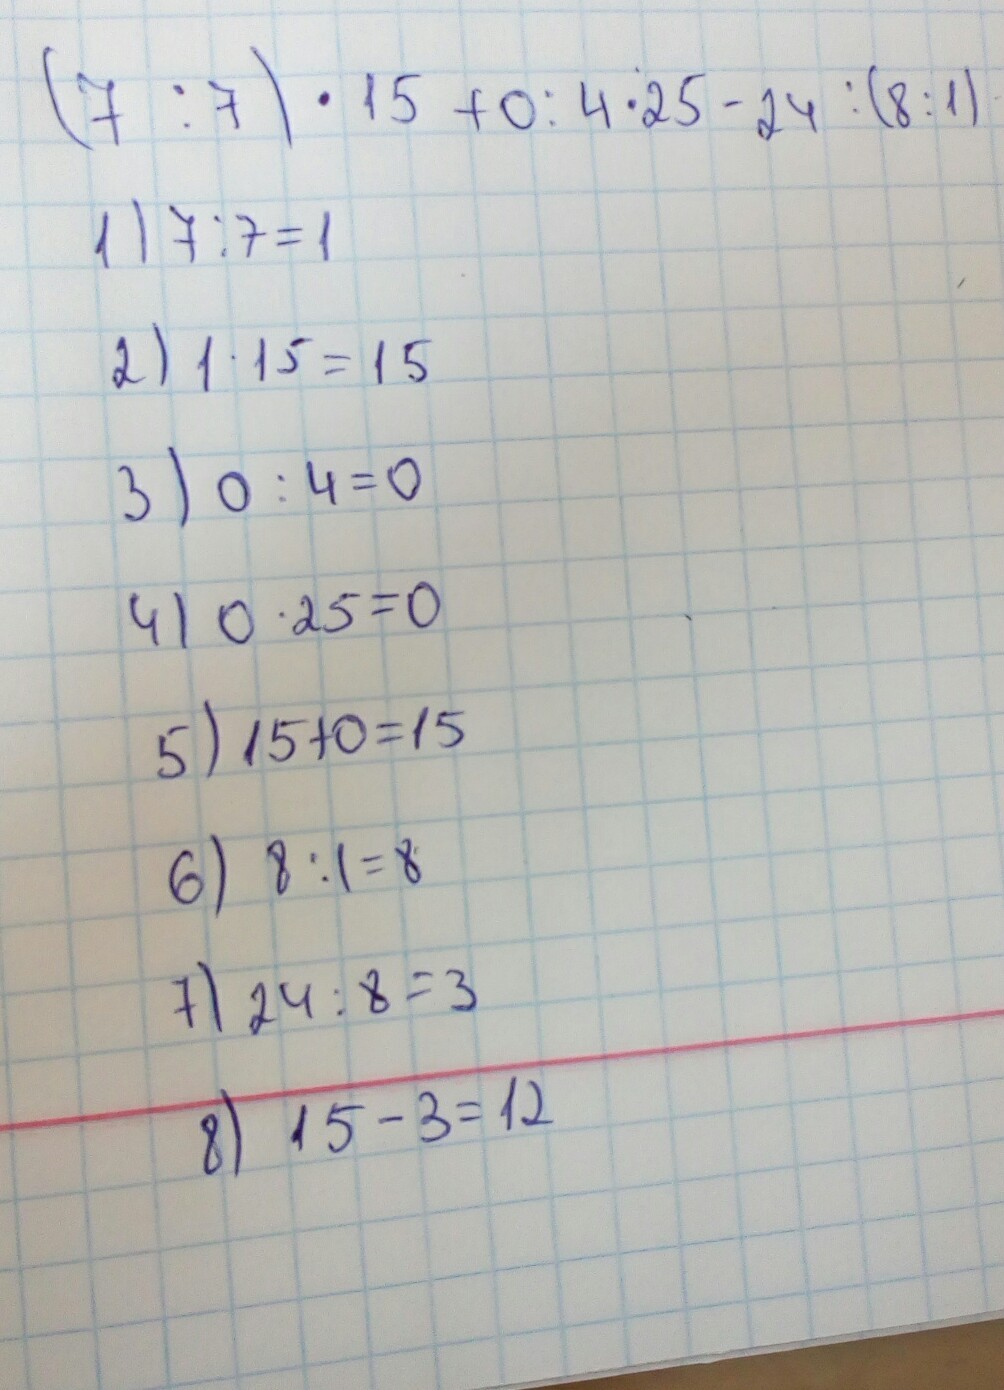 (7 : 7) · 15 + 0 : 4 · 25 - 24 : (8 : 1)
1) 7 : 7 = 1
2) 1 · 15 = 15
3) 0 : 4 = 0
4) 0 · 25 = 0
5) 15 + 0 = 15
6) 8 : 1 = 8
7) 24 : 8 = 3
8) 15 - 3 = 12